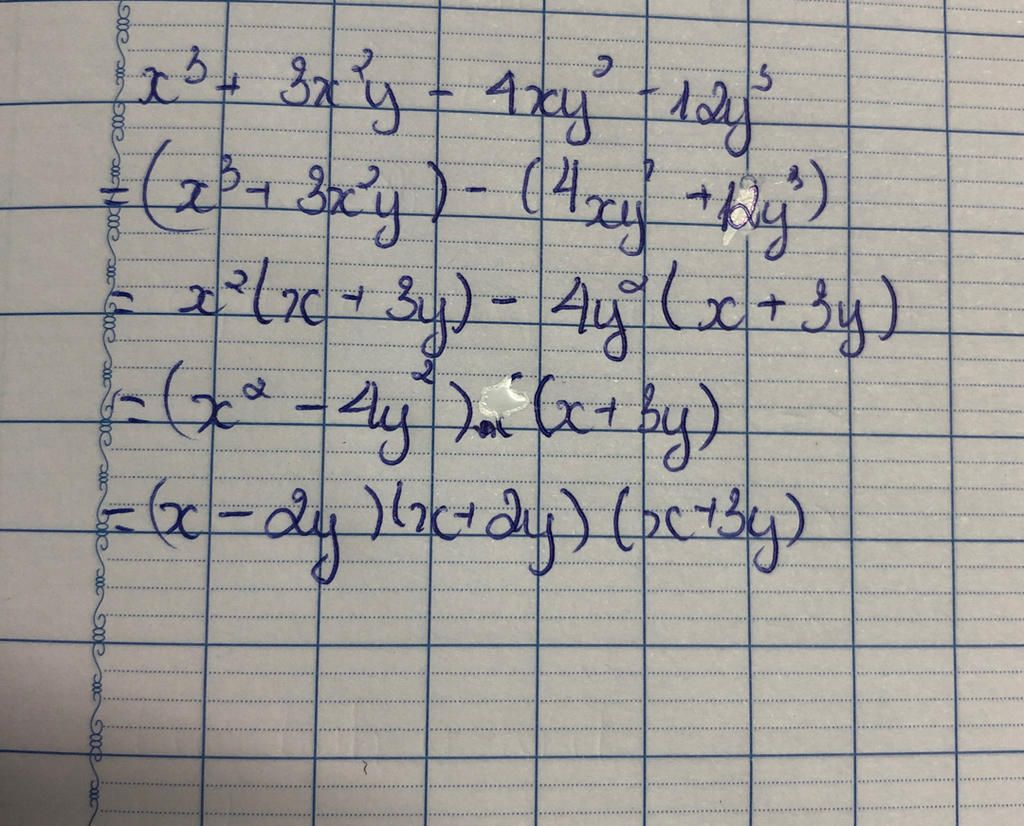 x³ + 3x²y - 4xy² - 12y³
= (x³ + 3x²y) - (4xy² + 12y³)
= x²(x + 3y) - 4y²(x + 3y)
= (x² - 4y²)(x + 3y)
= (x - 2y)(x + 2y)(x + 3y)